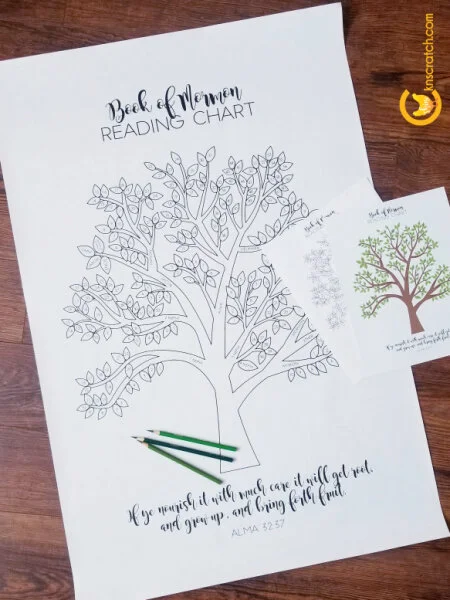 knscratch.com
Book of Mormon
READING CHART
If ye nourish it with much care it will get root,
and grow up, and bring forth fruit.
ALMA 32:37
Book of Mormon
Book of Mormon
If ye nourish it with much care it will get root,
and grow up, and bring forth fruit.